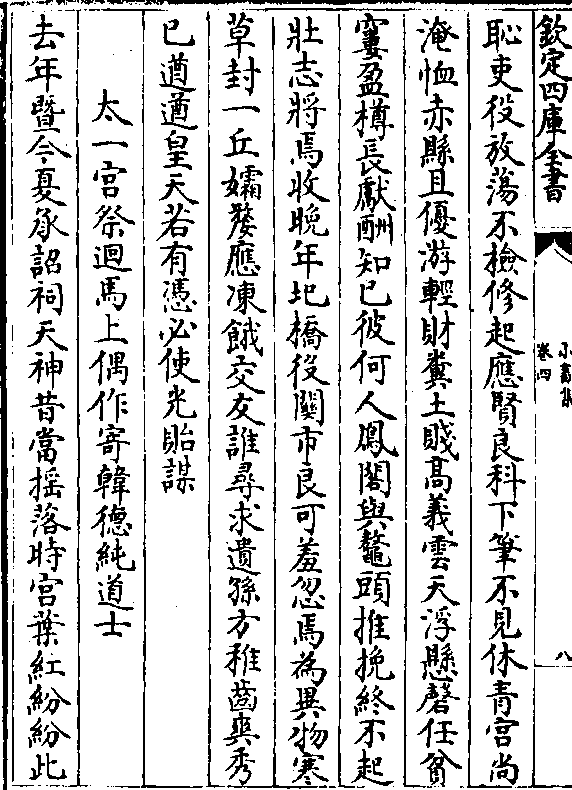 欽定四庫全書
小畜集
卷四
八
恥吏役放蕩不檢修起應賢良科下筆不見休青宫尚
淹恤赤縣且優游輕財糞土賤髙義雲天浮懸磬任貧
窶盈樽長獻酬知已彼何人鳳閣與鼇頭推挽終不起
壯志將焉收晚年圯橋役關市良可羞忽焉為異物寒
草封一丘孀嫠應凍餓交友誰尋求遺孫方稚齒與秀
已遒遒皇天若有憑必使光貽謀
太一宫祭迴馬上偶作寄韓徳純道士
去年暨今夏承詔祠天神昔當揺落時宫葉紅紛紛此